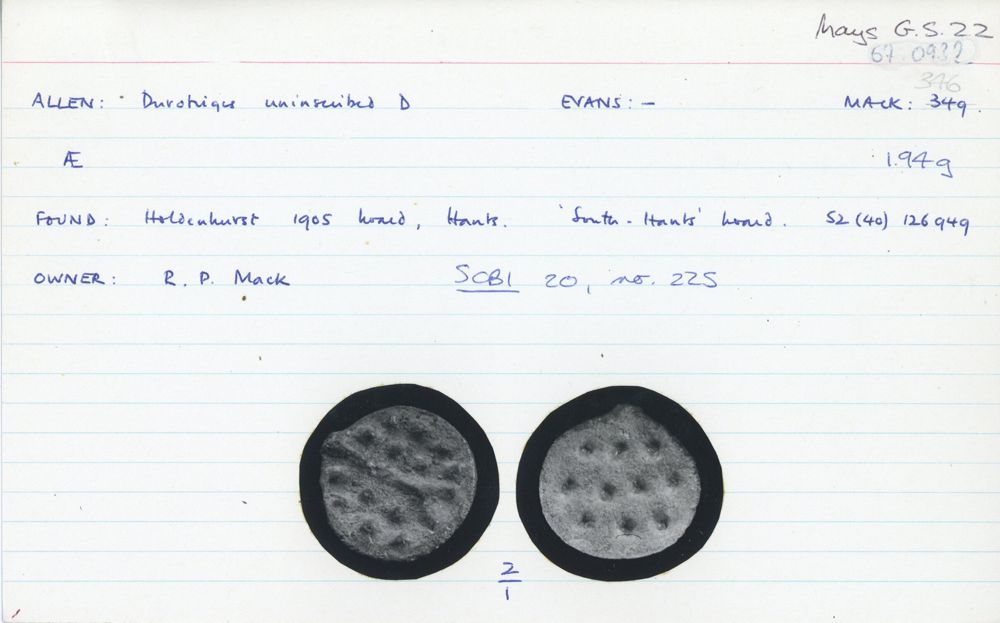 Mays G.S. 22
67.0932
346
ALLEN: Durotriges uninscribed D EVANS: — MACK: 349.
Æ 1.94 g
FOUND: Holdenhurst 1905 hoard, Hants. 'South-Hants' hoard. SZ (40) 126949
OWNER: R. P. Mack SCBI 20, no. 225
2
1